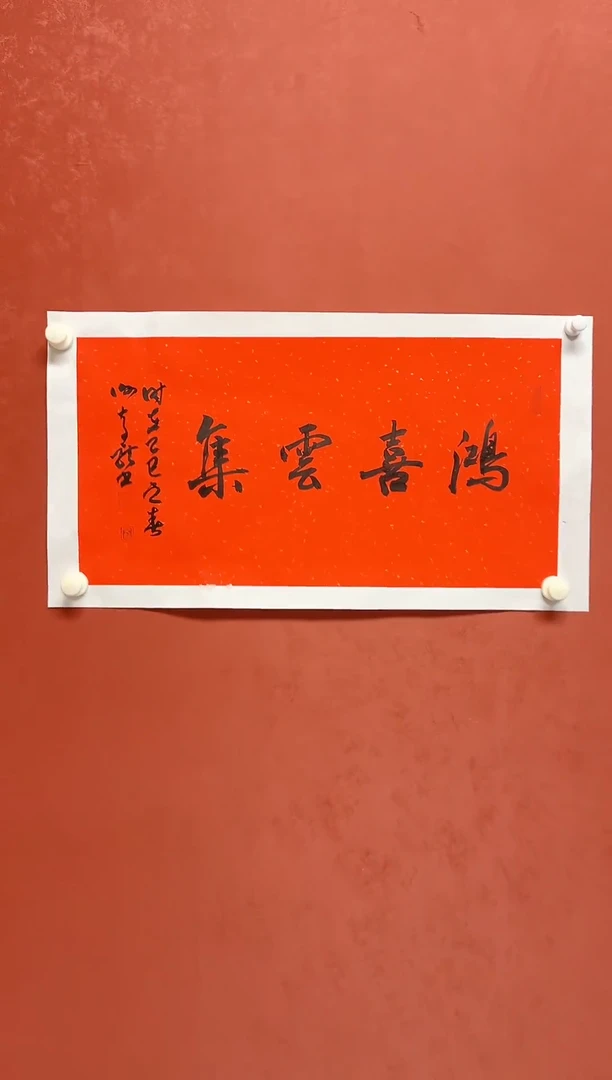 鴻喜雲集
時在乙巳之春